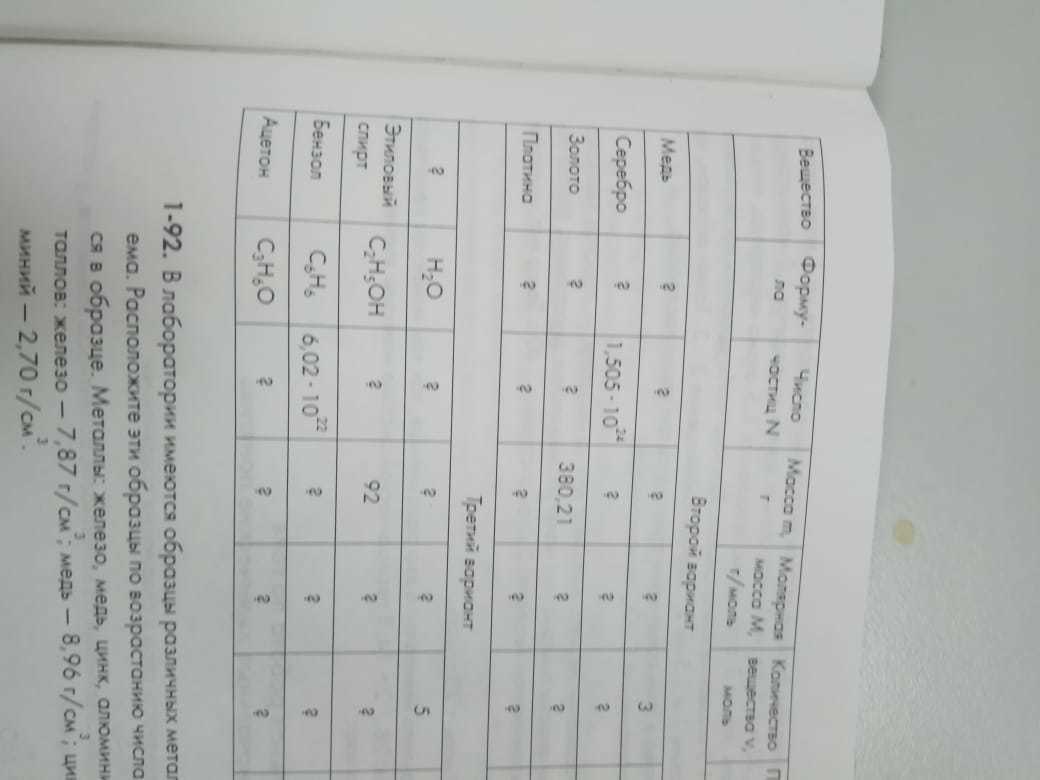 Вещество
Форму-
ла
Число
частиц N
Масса m,
г
Молярная
масса M,
г/моль
Количество
вещества ν,
моль
П
Второй вариант
Медь ? ? ? ? 3
Серебро ? 1,505 · 10²⁴ ? ? ?
Золото ? ? 380,21 ? ?
Платина ? ? ? ? ?
Третий вариант
? H₂O ? ? ? 5
Этиловый
спирт
C₂H₅OH ? 92 ? ?
Бензол C₆H₆ 6,02 · 10²² ? ? ?
Ацетон C₃H₆O ? ? ? ?
1-92. В лаборатории имеются образцы различных метал
ема. Расположите эти образцы по возрастанию числа
ся в образце. Металлы: железо, медь, цинк, алюмини
таллов: железо – 7,87 г/см³; медь – 8,96 г/см³; ци
миний – 2,70 г/см³.